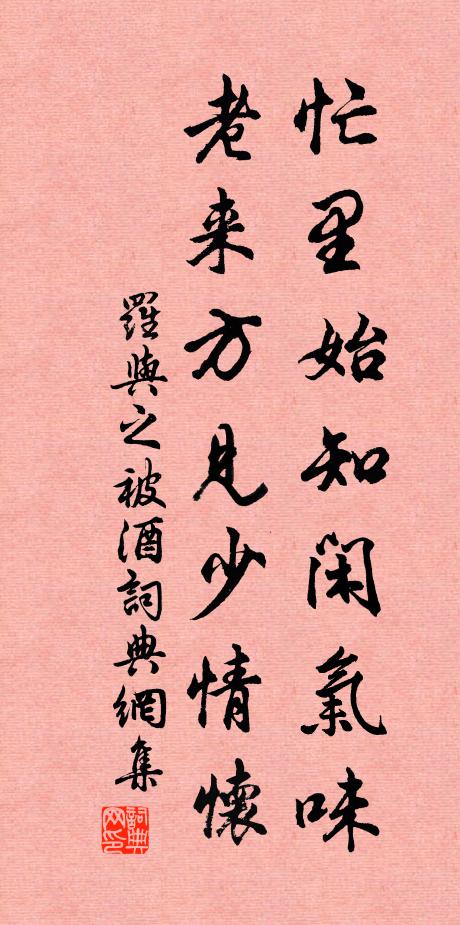 忙里始知閑氣味
老来方見少情懷
羅與之被酒詞典網集
詞典网印